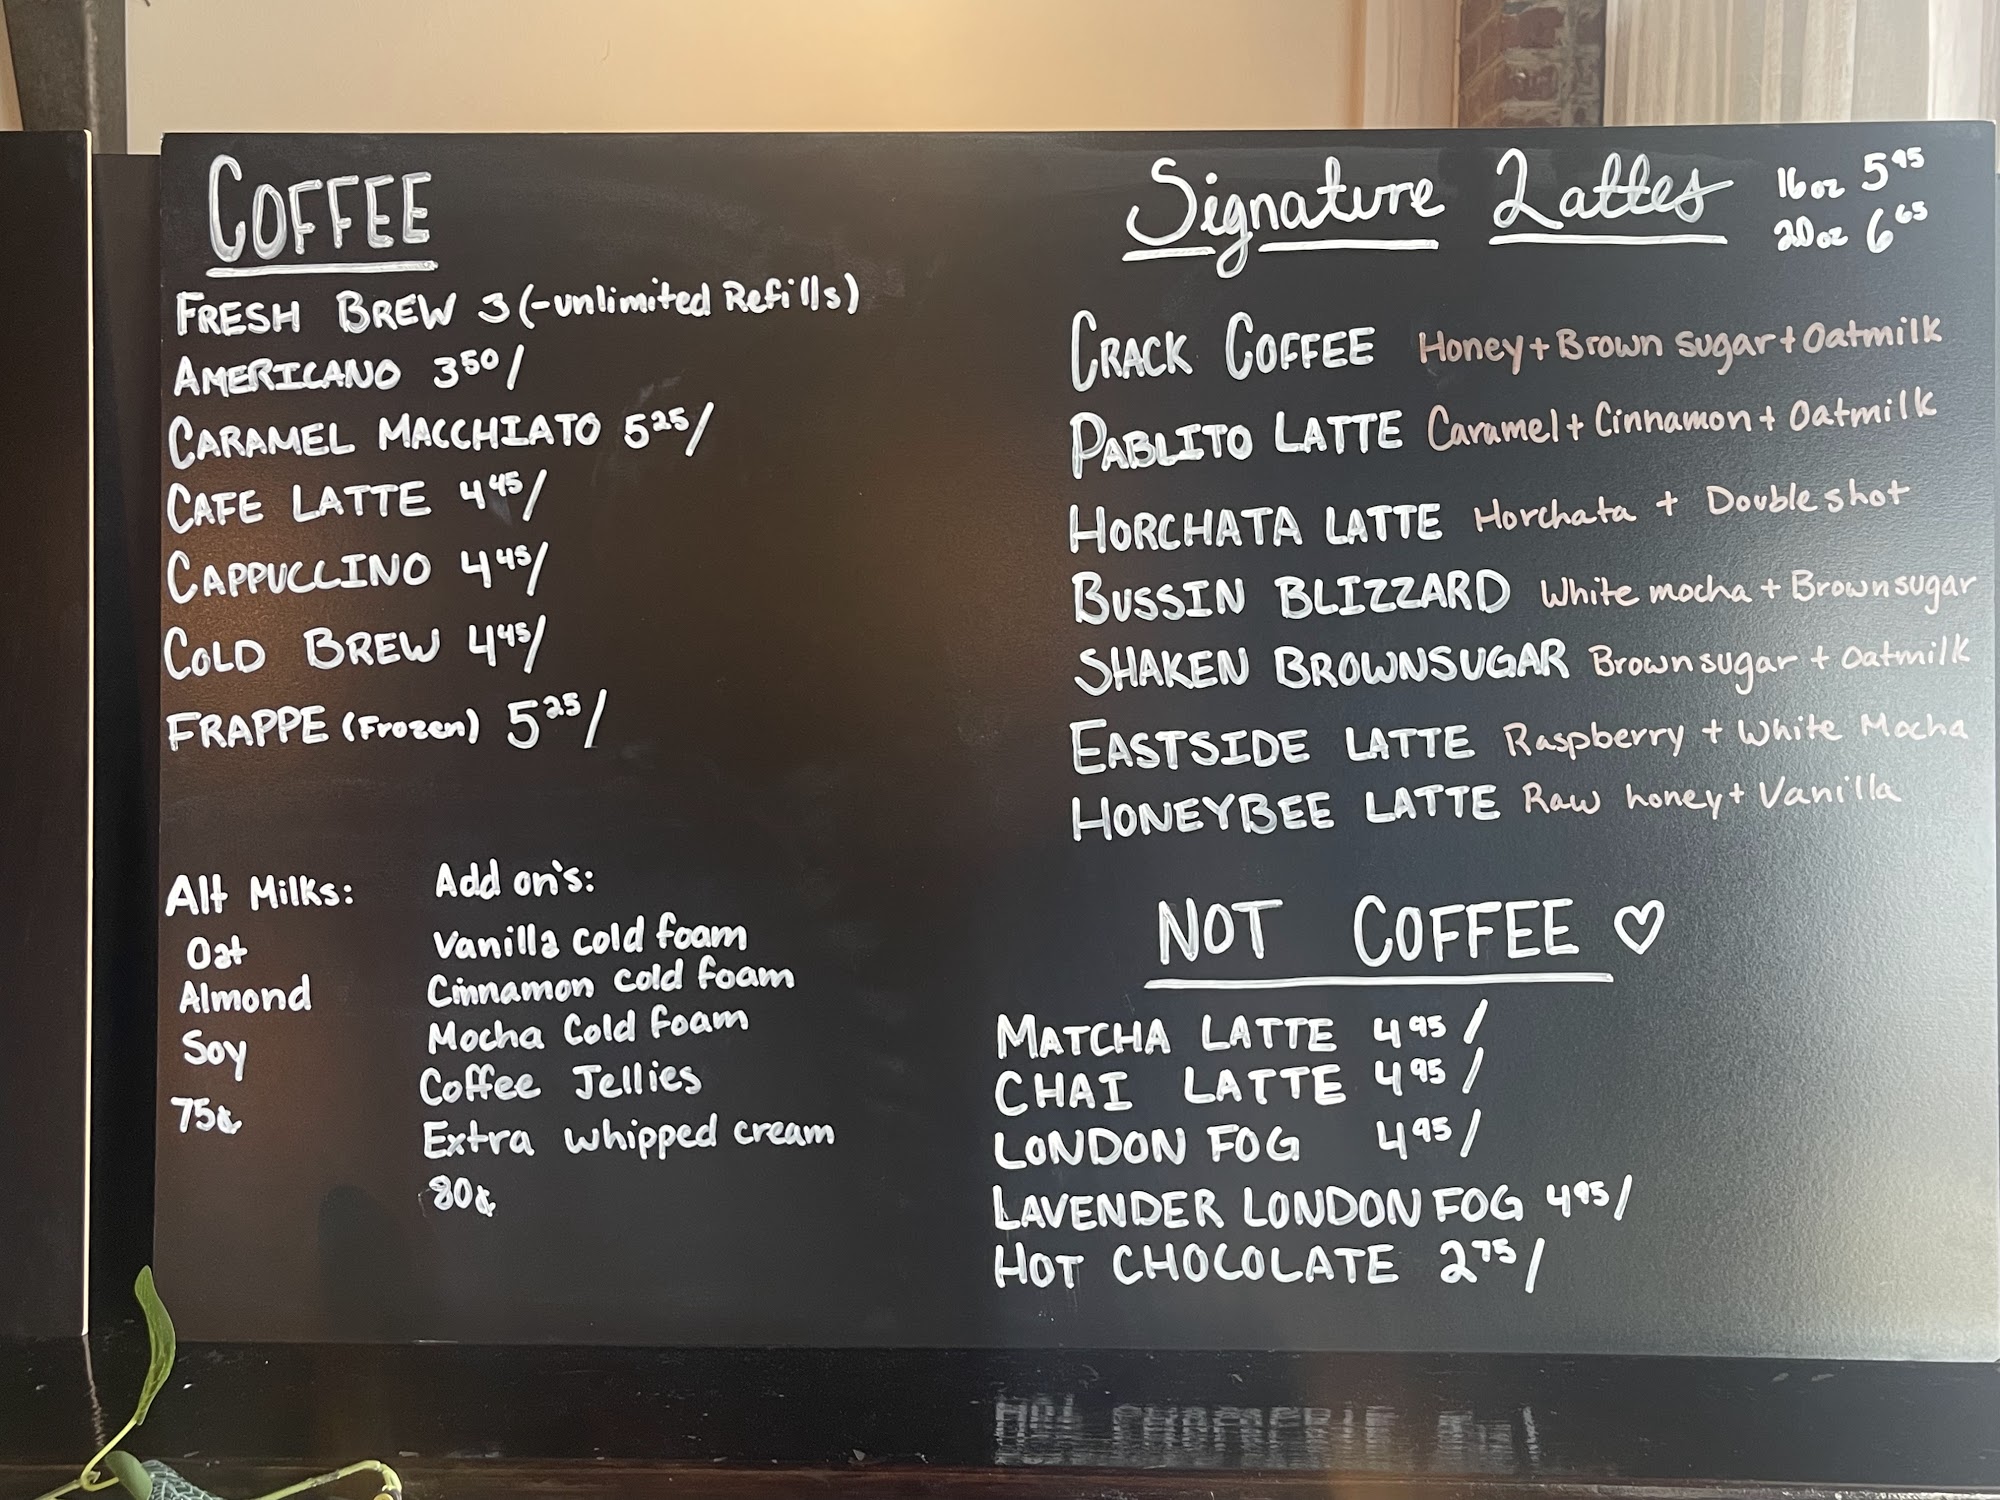 COFFEE
FRESH BREW 3 (-unlimited Refills)
AMERICANO 3 50/
CARAMEL MACCHIATO 5 25/
CAFE LATTE 4 45/
CAPPUCCINO 4 45/
COLD BREW 4 45/
FRAPPE (Frozen) 5 25/
Alt Milks:
Oat
Almond
Soy
75¢
Add on's:
Vanilla cold foam
Cinnamon cold foam
Mocha Cold foam
Coffee Jellies
Extra whipped cream
80¢
Signature Lattes
16oz 5 95
20oz 6 65
CRACK COFFEE Honey + Brown sugar + Oatmilk
PABLITO LATTE Caramel + Cinnamon + Oatmilk
HORCHATA LATTE Horchata + Double shot
BUSSIN BLIZZARD White mocha + Brownsugar
SHAKEN BROWNSUGAR Brownsugar + Oatmilk
EASTSIDE LATTE Raspberry + White Mocha
HONEYBEE LATTE Raw honey + Vanilla
NOT COFFEE ♡
MATCHA LATTE 4 95/
CHAI LATTE 4 95/
LONDON FOG 4 95/
LAVENDER LONDON FOG 4 95/
HOT CHOCOLATE 2 75/